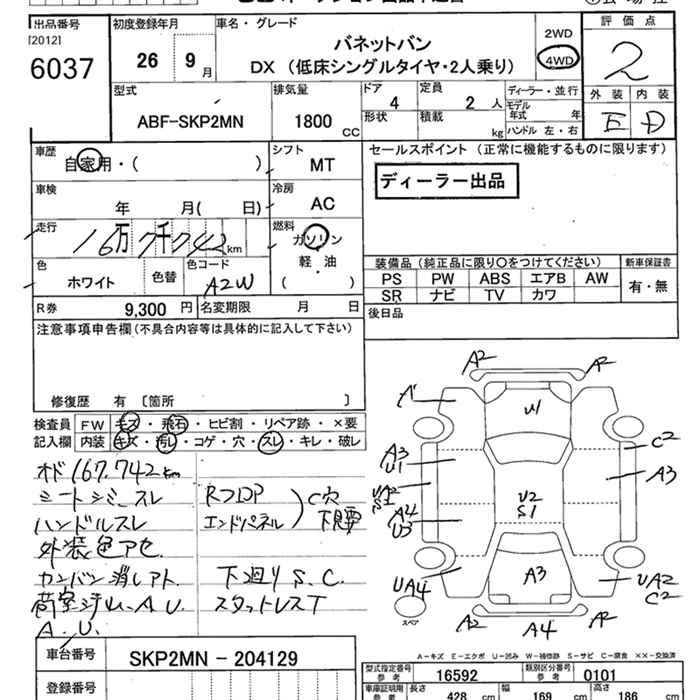 出品番号
[2012]
6037
初度登録年月
26 9 月
車名・グレード
バネットバン
DX (低床シングルタイヤ・2人乗り)
2WD
4WD
評価点
2
外装 内装
E D
型式
ABF-SKP2MN
排気量
1800 CC
ドア
4
定員
2 人
形状
積載
kg
ディーラー・並行
モデル年式 年
ハンドル 左・右
車歴
自家用・( )
シフト
MT
車検
年 月( 日)
冷房
AC
走行
16万7千742km
燃料
ガソリン
軽・油
( )
色
ホワイト
色替
色コード
A2W
R券
9,300 円
名変期限 月 日
セールスポイント (正常に機能するものに限ります)
ディーラー出品
装備品 (純正品に限り○をつけてください)
新車保証書
PS PW ABS エアB AW
SR ナビ TV カワ
有・無
後日品
注意事項申告欄 (不具合内容等は具体的に記入して下さい)
修復歴 有 〔箇所 〕
検査員
記入欄
FW キズ・飛石・ヒビ割・リペア跡・×要
内装 キズ・汚レ・コゲ・穴・スレ・キレ・破レ
オド167.742km
シートシミ、スレ
ハンドルスレ
外装色アセ
カンバン消しアト.
荷室汚レ.A.U.
A.U.
RフロP
エンドパネル
C穴
下廻りS.C.
スタットレスT
A2
A2
U1
A3
U1
C2
A3
A4
U3
U2
S1
UA4
A3
UA2
C2
スペア
A2
A4
A2
A-キズ E-エクボ U-凹み W-補修跡 S-サビ C-腐食 XX-交換済
車台番号
SKP2MN - 204129
登録番号
型式指定番号
参考
16592
類別区分番号
参考
0101
車庫証明用
参考
長さ
428 cm
幅
169 cm
高さ
186 cm